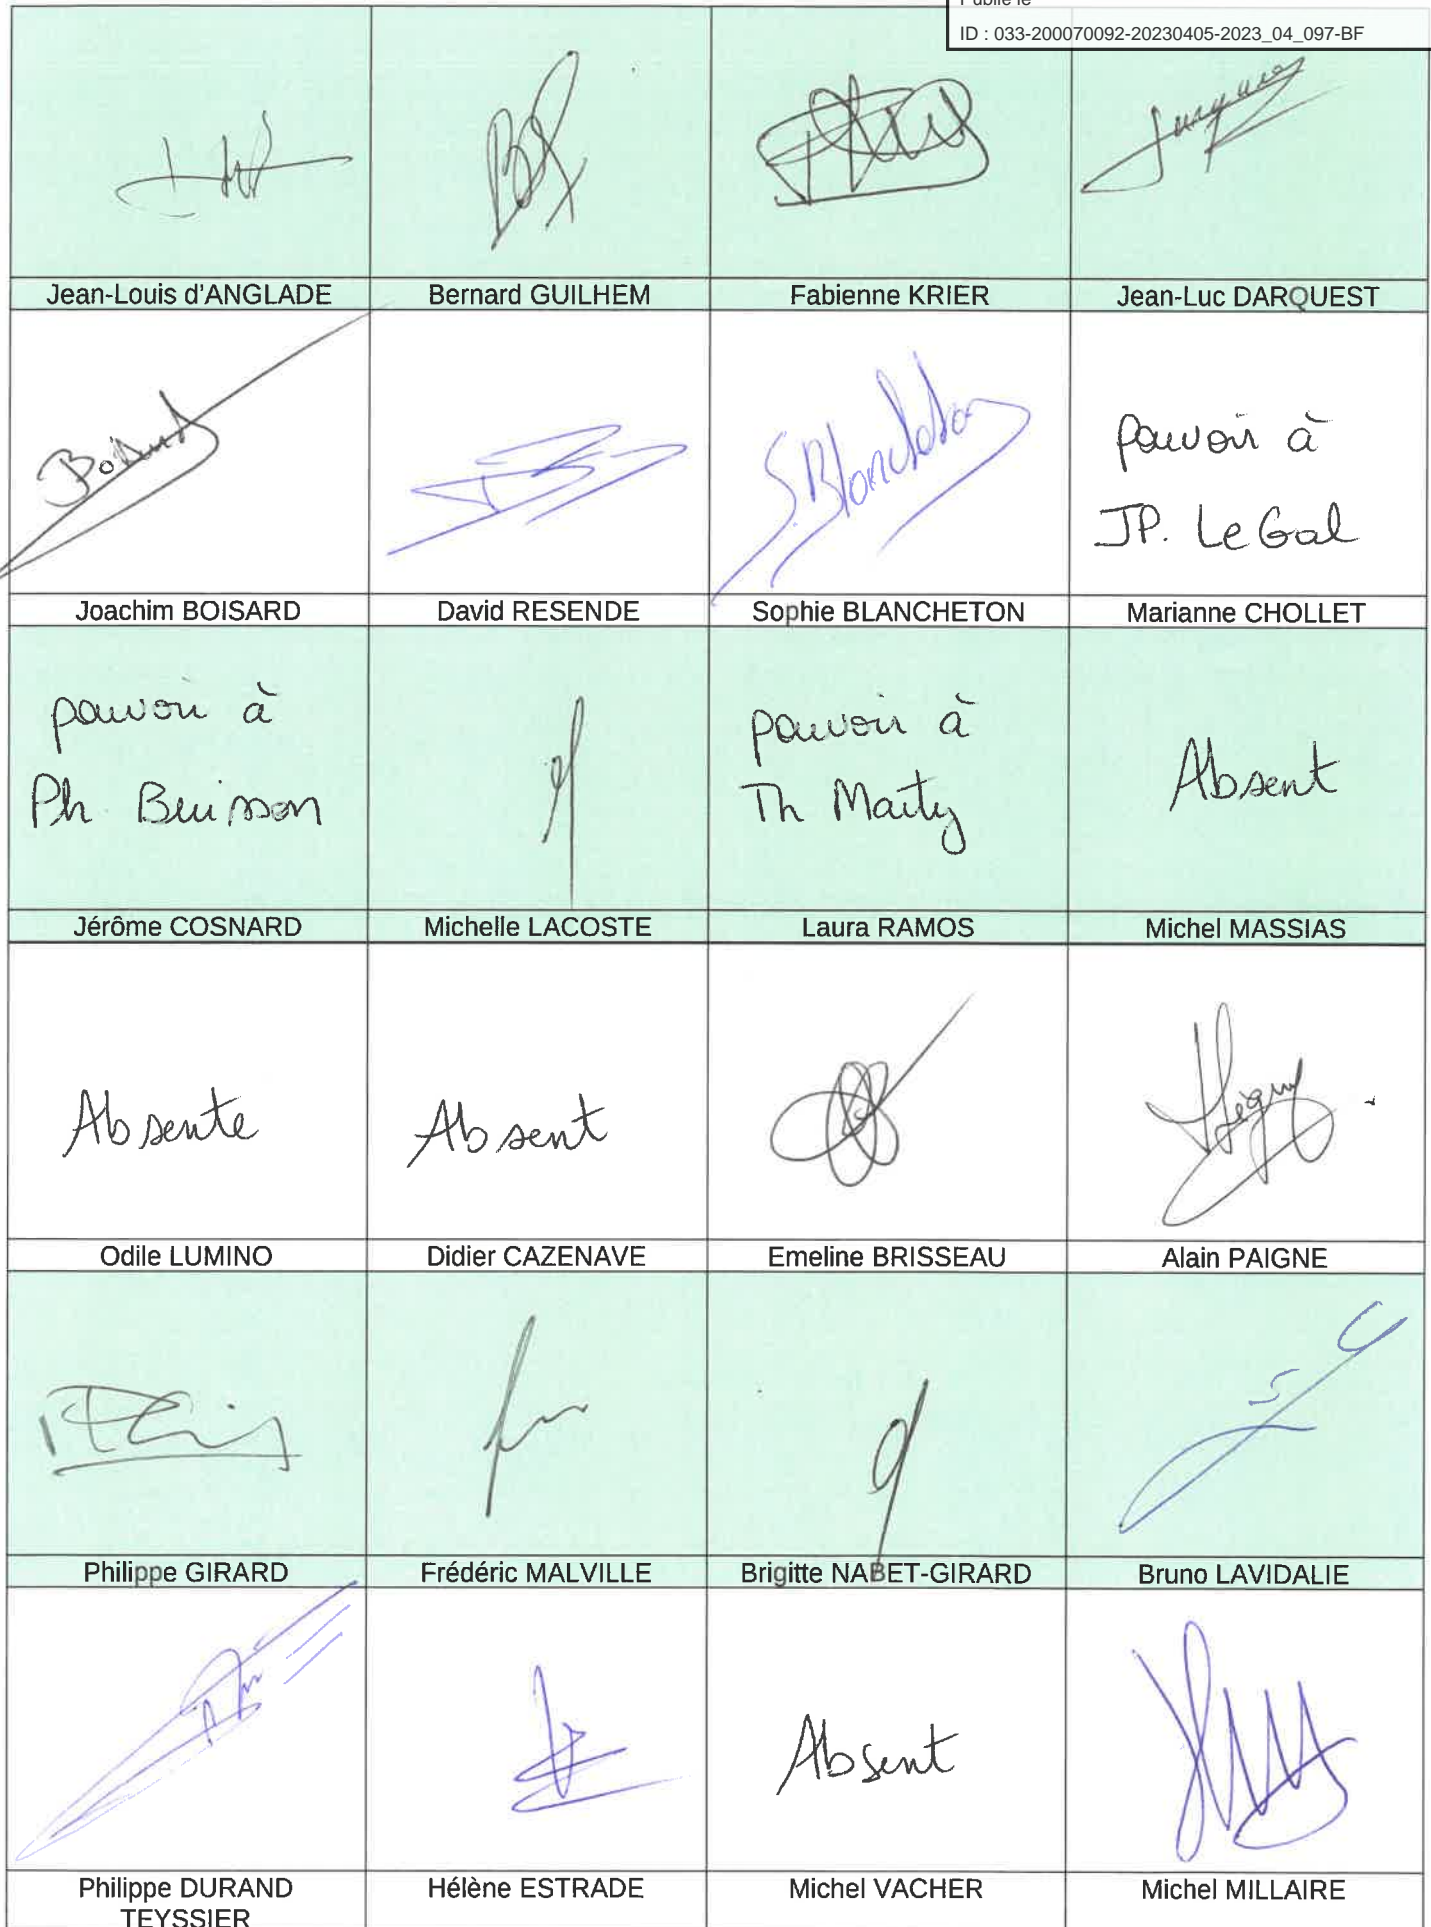 Publié le
ID : 033-200070092-20230405-2023_04_097-BF
Jean-Louis d'ANGLADE
Bernard GUILHEM
Fabienne KRIER
Jean-Luc DARQUEST
Boisard
S. Blancheton
pouvoir à
JP. Le Gal
Joachim BOISARD
David RESENDE
Sophie BLANCHETON
Marianne CHOLLET
pouvoir à
Ph Buisson
pouvoir à
Th Marty
Absent
Jérôme COSNARD
Michelle LACOSTE
Laura RAMOS
Michel MASSIAS
Absente
Absent
Odile LUMINO
Didier CAZENAVE
Emeline BRISSEAU
Alain PAIGNE
Philippe GIRARD
Frédéric MALVILLE
Brigitte NABET-GIRARD
Bruno LAVIDALIE
Absent
Philippe DURAND
TEYSSIER
Hélène ESTRADE
Michel VACHER
Michel MILLAIRE